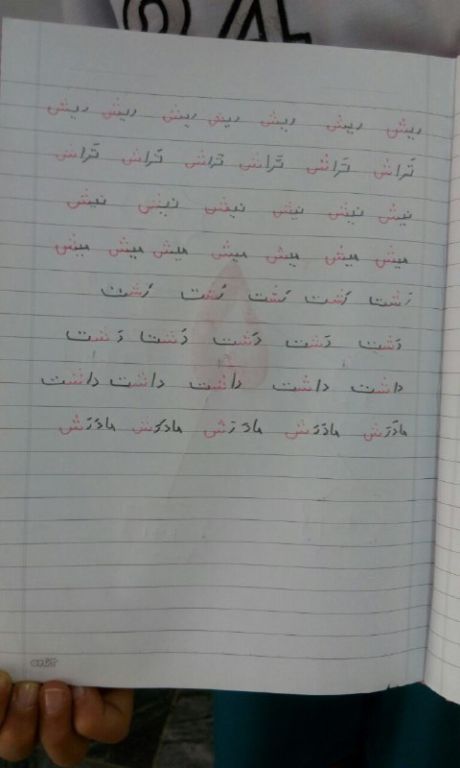 ریش ریش ریش ریش ریش ریش ریش
تَراش تَراش تَراش تَراش تَراش تَراش
نیش نیش نیش نیش نیش نیش
میش میش میش میش میش میش میش
زِشت زِشت زِشت زِشت زِشت
دَشت دَشت دَشت دَشت دَشت
داشت داشت داشت داشت داشت
مادَرَش مادَرَش مادَرَش مادَرَش مادَرَش